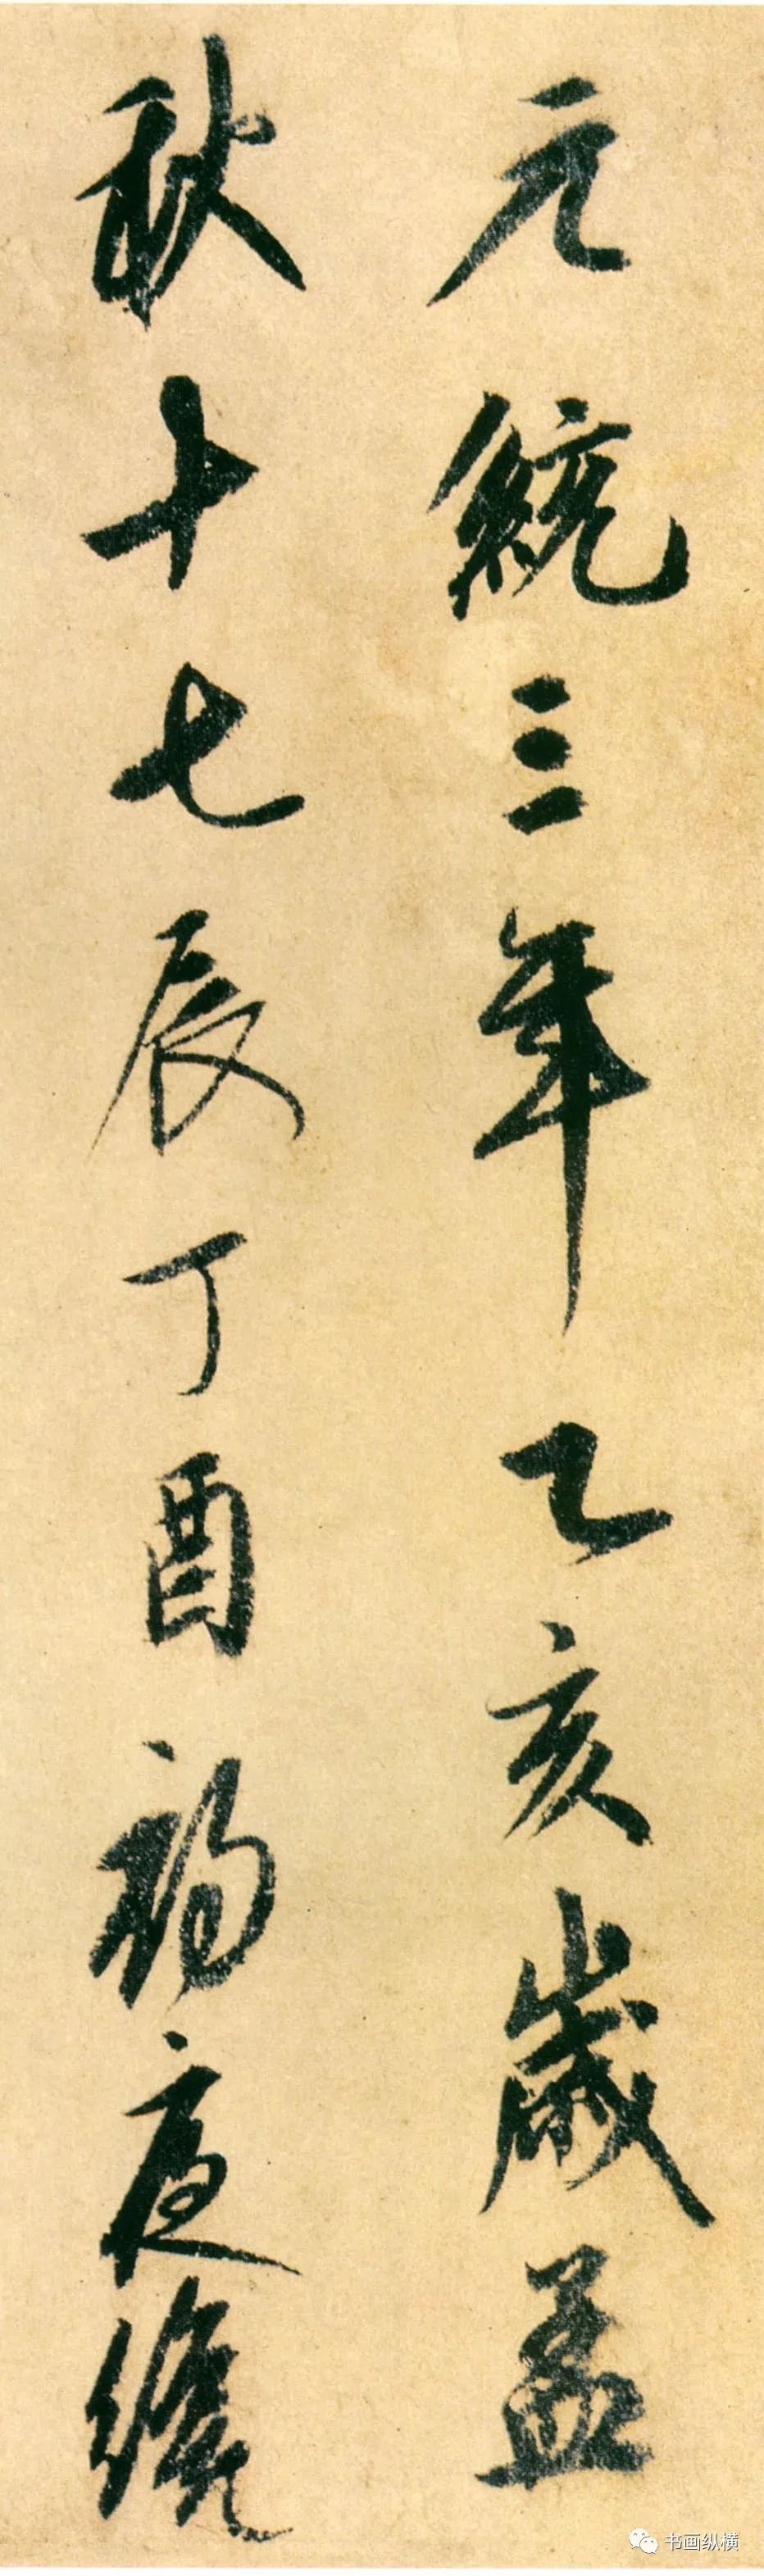 元統三年乙亥歲孟
秋十七辰丁酉初夜纔
书画纵横